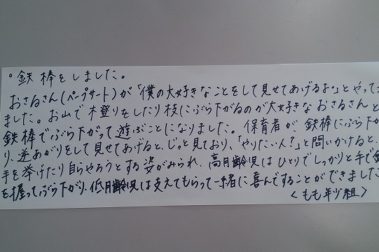 。鉄棒をしました。
おさるさん（ペープサート）が「僕の大好きなことをして見せてあげるよ」とやって
ました。お山で木登りをしたり枝にぶら下がるのが大好きなおさるさんと
鉄棒でぶら下がって遊ぶことになりました。保育者が鉄棒にぶら下が
り、逆あがりをして見せてあげると、じっと見ており、「やりたい人？」と問いかけると、
手を挙げたり自らやろうとする姿がみられ、高月齢児はひとりでしっかりと手で
を握ってぶら下がり、低月齢児は支えてもらって一緒に喜んですることができました
＜もも組＞